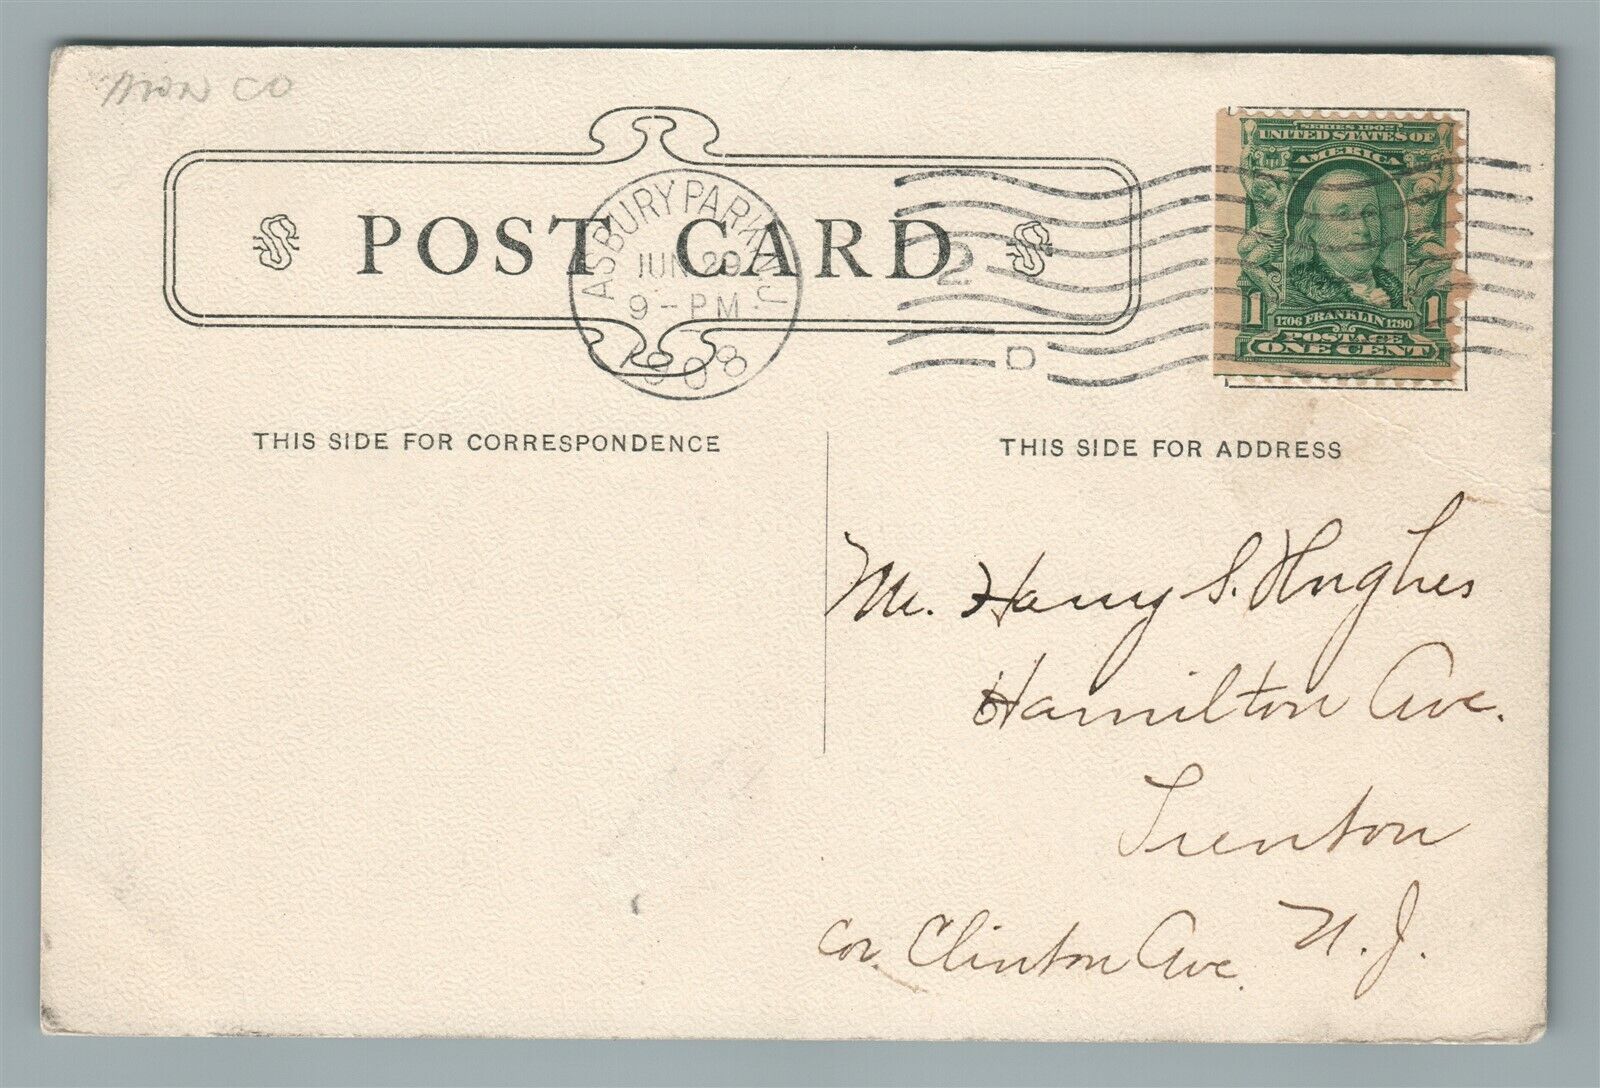 POST CARD
ASBURY PARK, N.J.
JUN 29
9 - PM
1908
2
D
SERIES 1902
UNITED STATES OF
AMERICA
1 1
1706 FRANKLIN 1790
POSTAGE
ONE CENT
THIS SIDE FOR CORRESPONDENCE
THIS SIDE FOR ADDRESS
Mr. Harry S. Hughes
Hamilton Ave.
Trenton
N. J.
Cor. Clinton Ave.